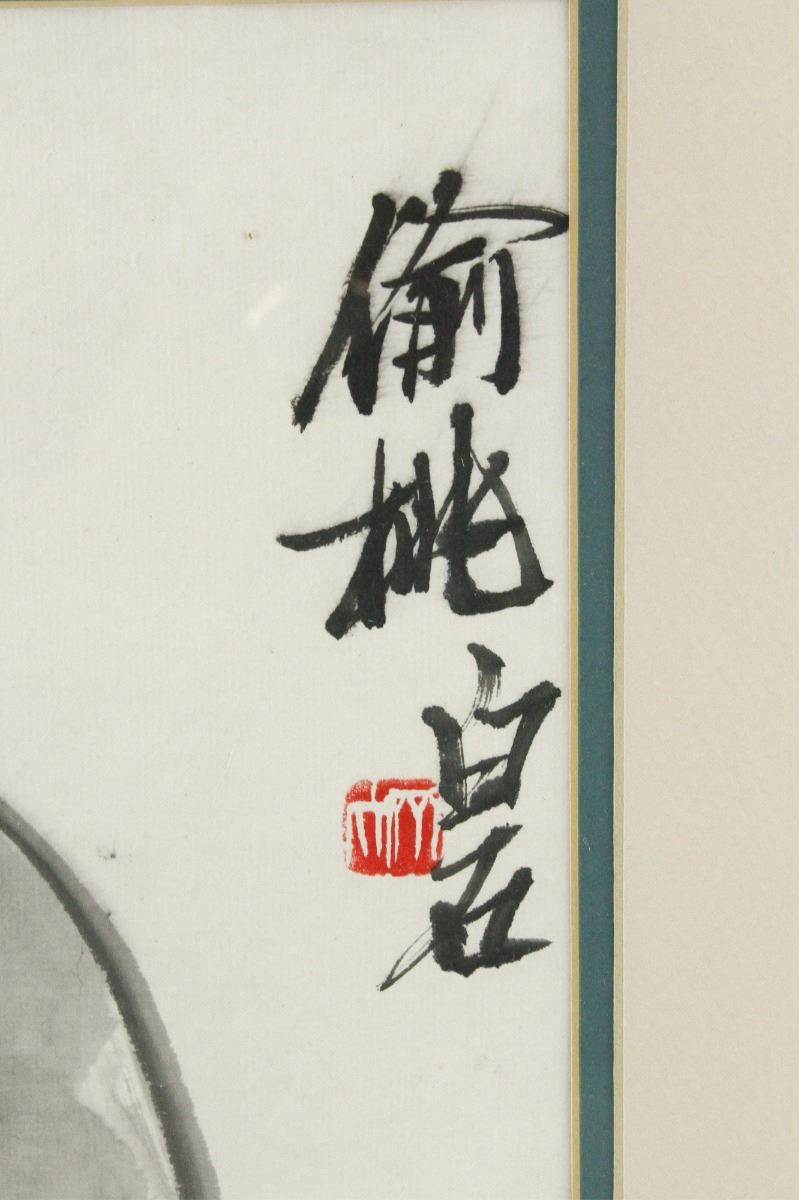 偷桃白石